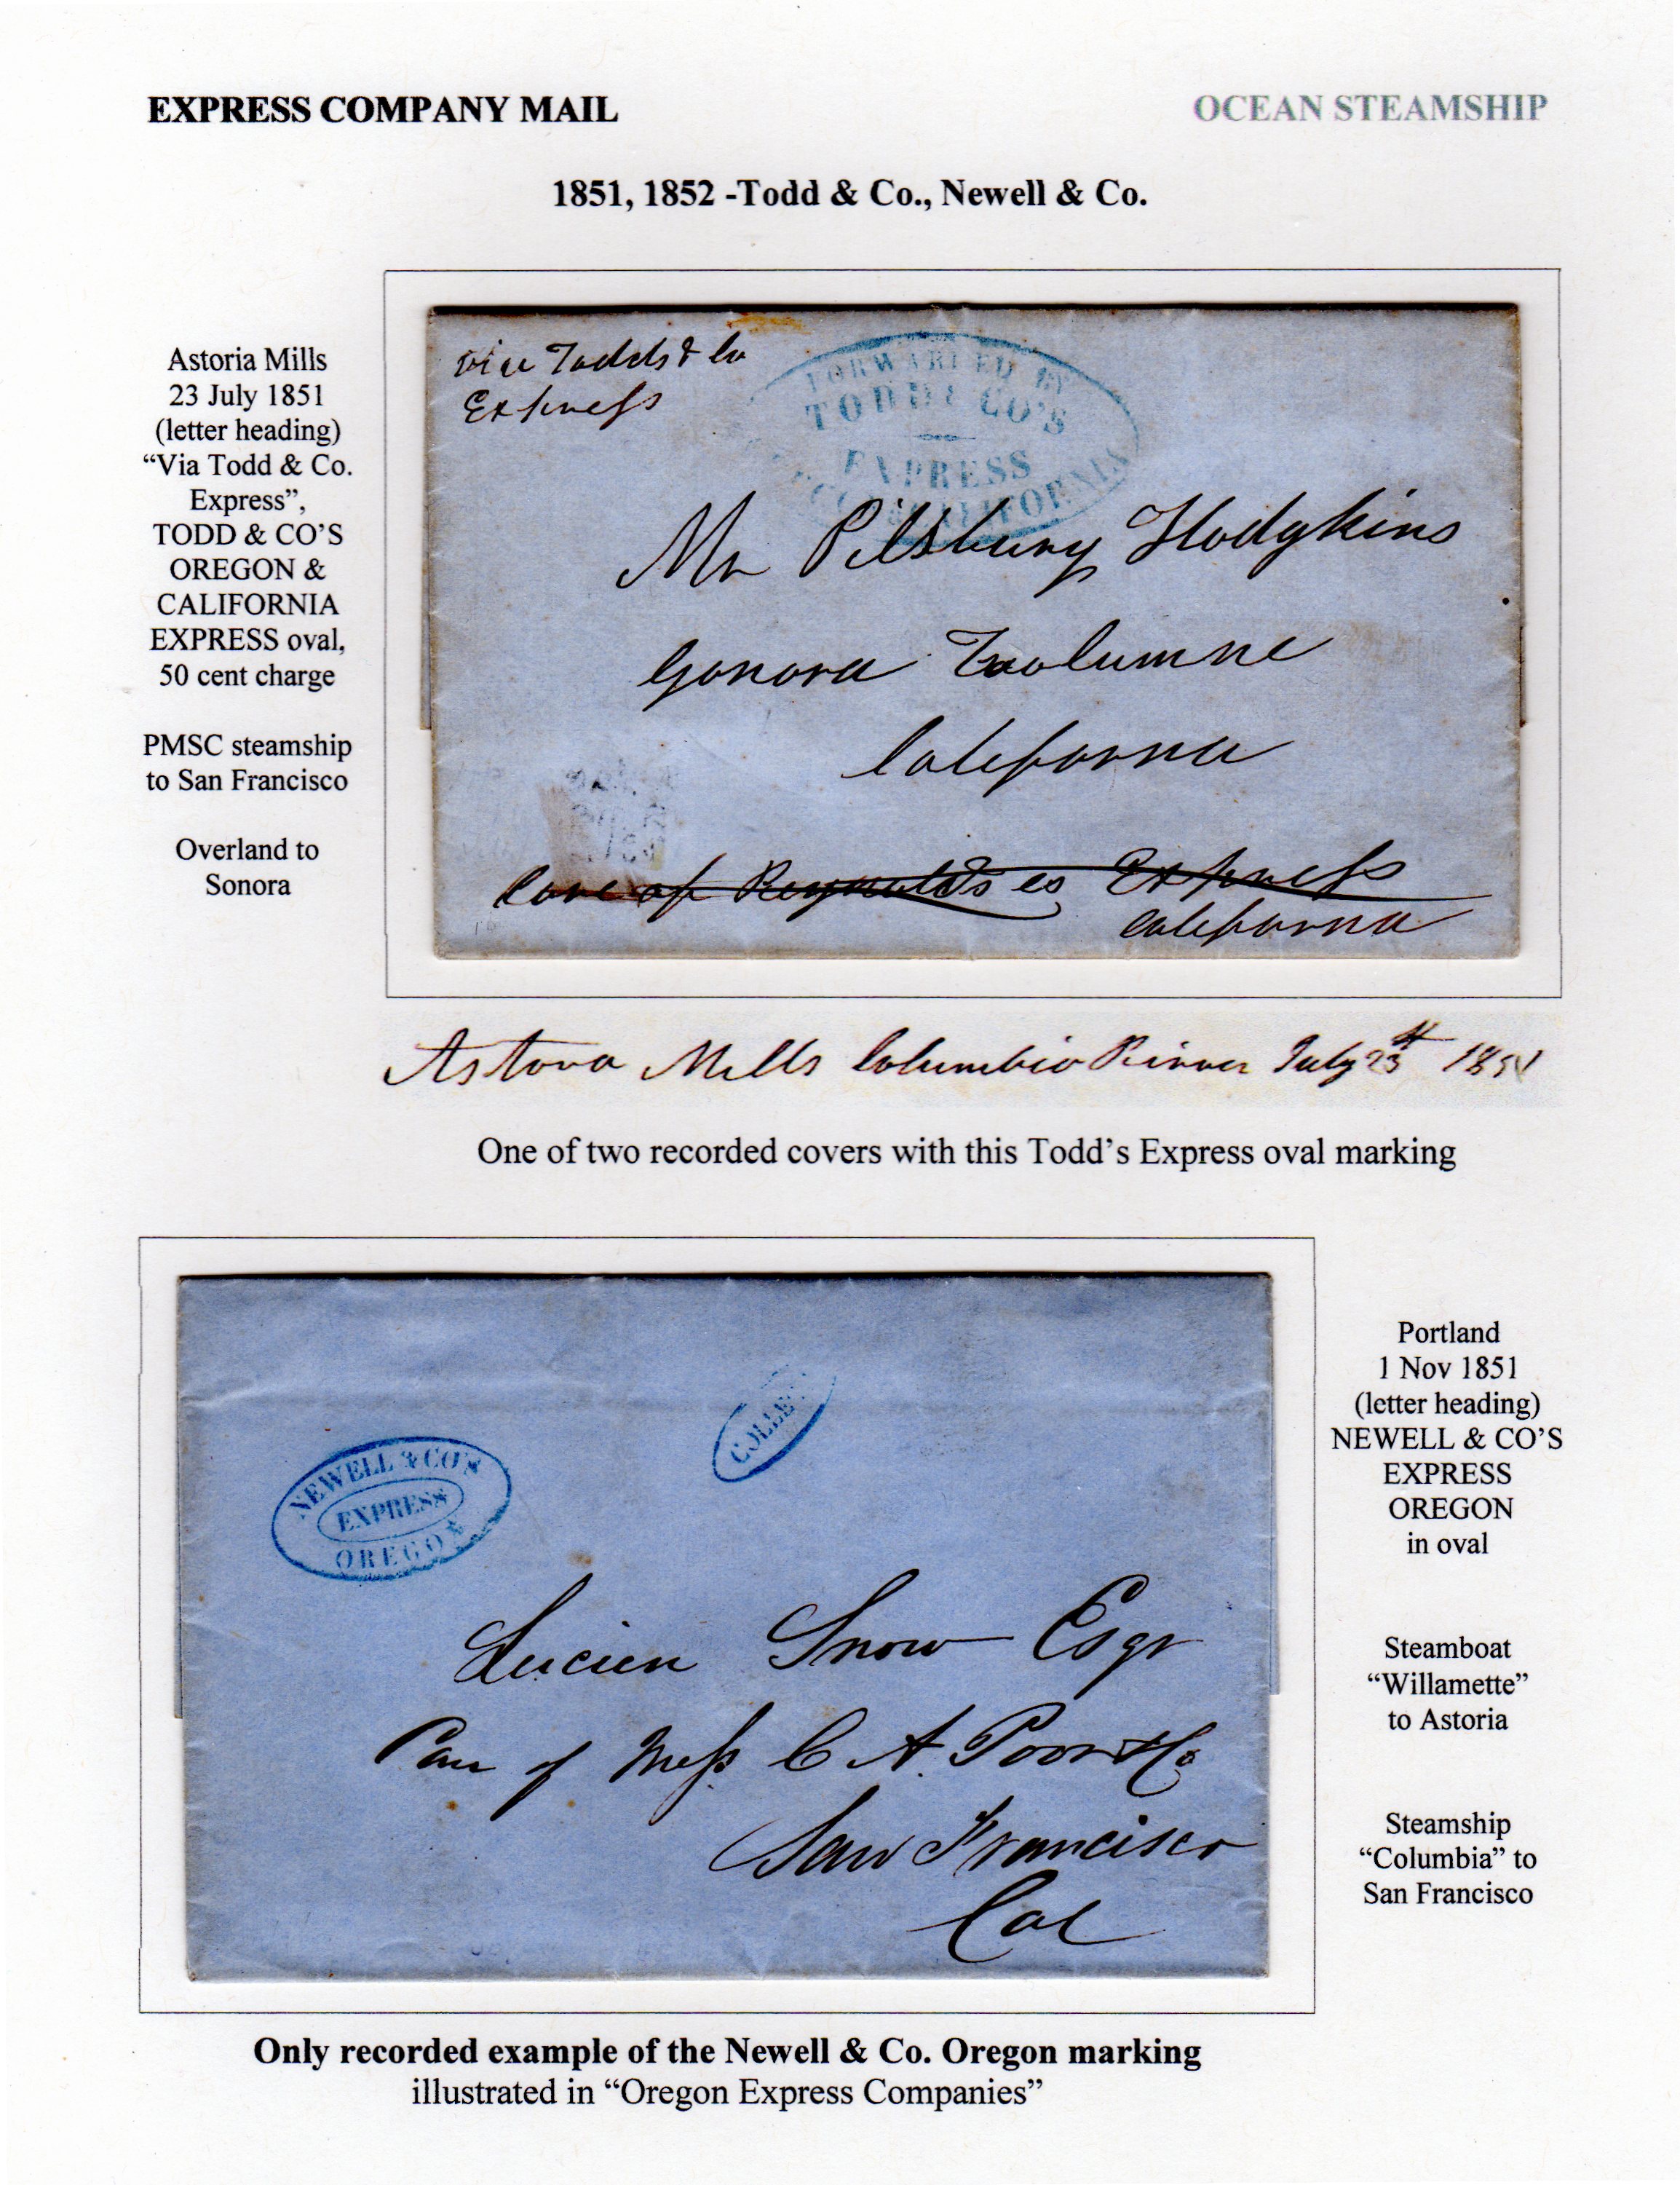 EXPRESS COMPANY MAIL
OCEAN STEAMSHIP
1851, 1852 -Todd & Co., Newell & Co.
Astoria Mills
23 July 1851
(letter heading)
“Via Todd & Co.
Express”,
TODD & CO’S
OREGON &
CALIFORNIA
EXPRESS oval,
50 cent charge
PMSC steamship
to San Francisco
Overland to
Sonora
via Todds & Co
Express
FORWARDED BY
TODD & CO'S
EXPRESS
CALIFORNIA
Mr Pilsbury Hodgkins
Sonora Tuolumne
California
Care of Reynolds Express
California
Astoria Mills Columbia River July 23 1851
One of two recorded covers with this Todd’s Express oval marking
NEWELL & CO'S
EXPRESS
OREGON
COLLE
Lucien Snow Esqr
Care of Mess C A. Poor & Co
San Francisco
Cal
Portland
1 Nov 1851
(letter heading)
NEWELL & CO’S
EXPRESS
OREGON
in oval
Steamboat
“Willamette”
to Astoria
Steamship
“Columbia” to
San Francisco
Only recorded example of the Newell & Co. Oregon marking
illustrated in “Oregon Express Companies”